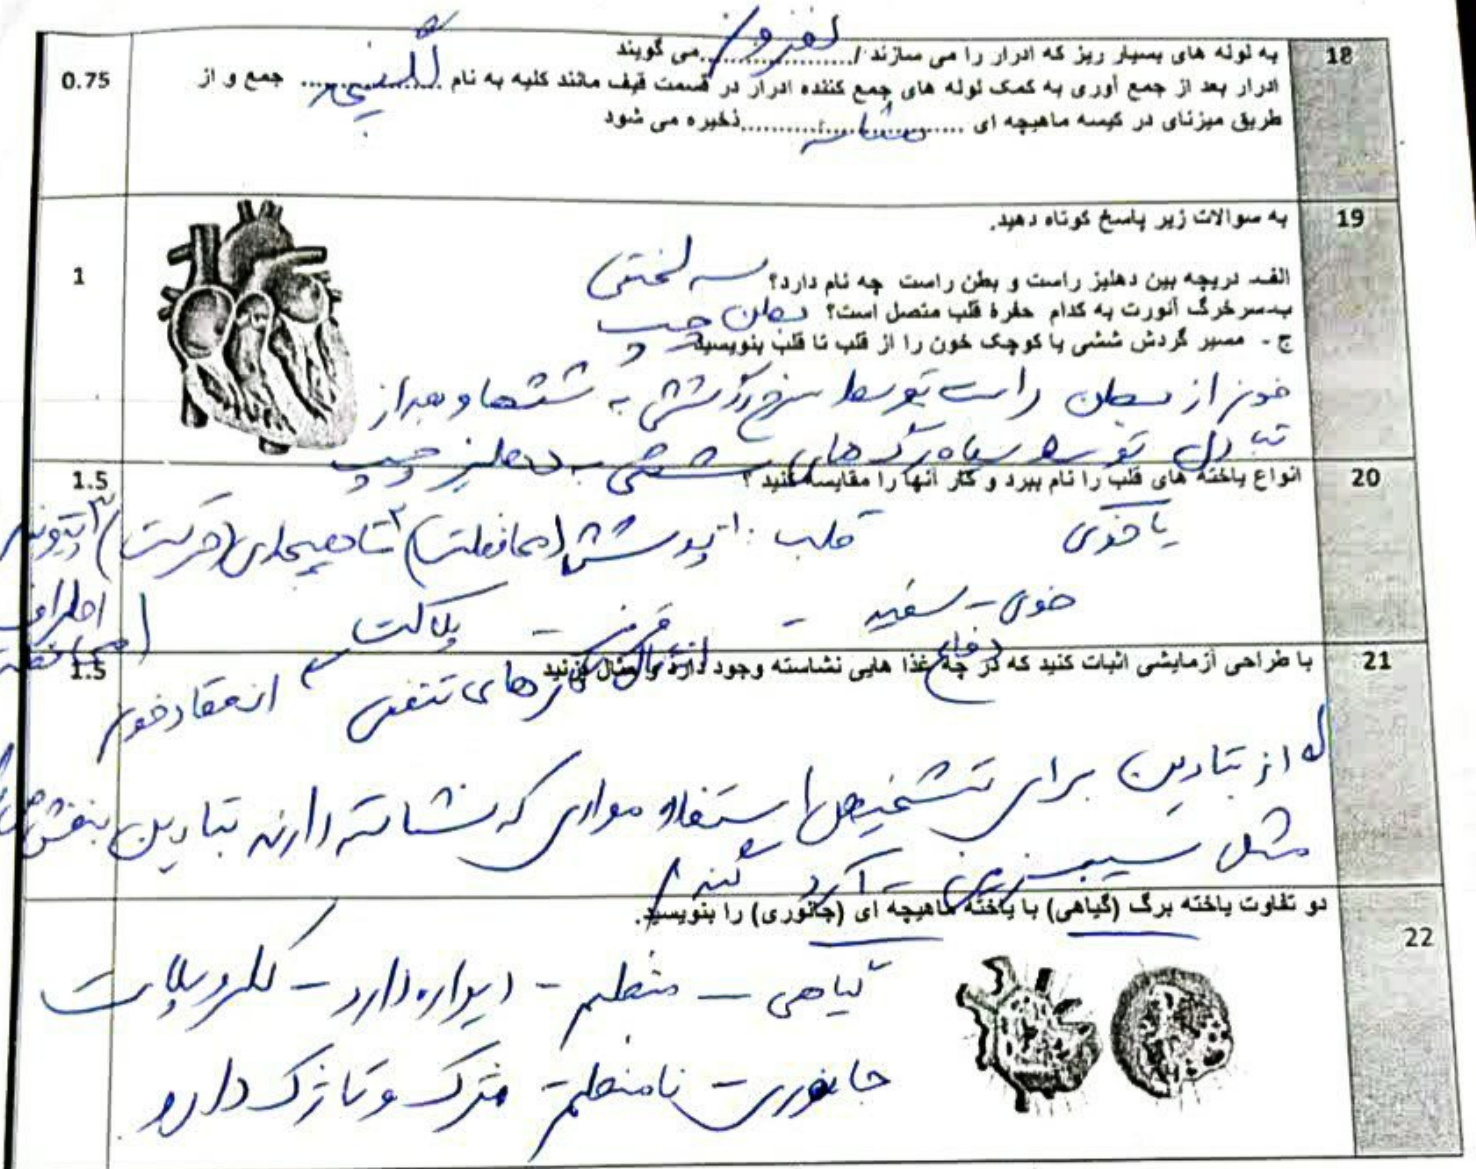 18
به لوله های بسیار ریز که ادرار را می سازند / نفرون می گویند
0.75
ادرار بعد از جمع آوری به کمک لوله های جمع کننده ادرار در قسمت قیف مانند کلیه به نام لگنچه جمع و از
طریق میزنای در کیسه ماهیچه ای مثانه ذخیره می شود
19
به سوالات زیر پاسخ کوتاه دهید.
1
الف- دریچه بین دهلیز راست و بطن راست چه نام دارد؟ سه لختی
ب-سرخرگ آئورت به کدام حفرهٔ قلب متصل است؟ بطن چپ
ج - مسیر گردش ششی یا کوچک خون را از قلب تا قلب بنویسید
خون از بطن راست توسط سرخرگ ششی به ششها و بعد از
تبادل توسط سیاهرگ های ششی به دهلیز چپ
20
انواع یاخته های قلب را نام ببرد و کار آنها را مقایسه کنید ؟
1.5
قلب : ۱ پوششی (محافظت) ۲ ماهیچه‌ای (حرکت) ۳ پیوندی
خونی - سفید - قرمز - پلاکت
دفاع انتقال گازهای تنفسی انعقاد خون
21
با طراحی آزمایشی اثبات کنید که در چه غذا هایی نشاسته وجود دارد و مثال بزنید
1.5
از تبادین برای تشخیص استفاده موادی که نشاسته دارند تبادین بنفش
مثل سیب زمینی - آرد گندم
22
دو تفاوت یاخته برگ (گیاهی) با یاخته ماهیچه ای (جانوری) را بنویسید.
گیاهی - منظم - دیواره دارد - کلروپلاست
جانوری - نامنظم - مژک و تاژک دارد